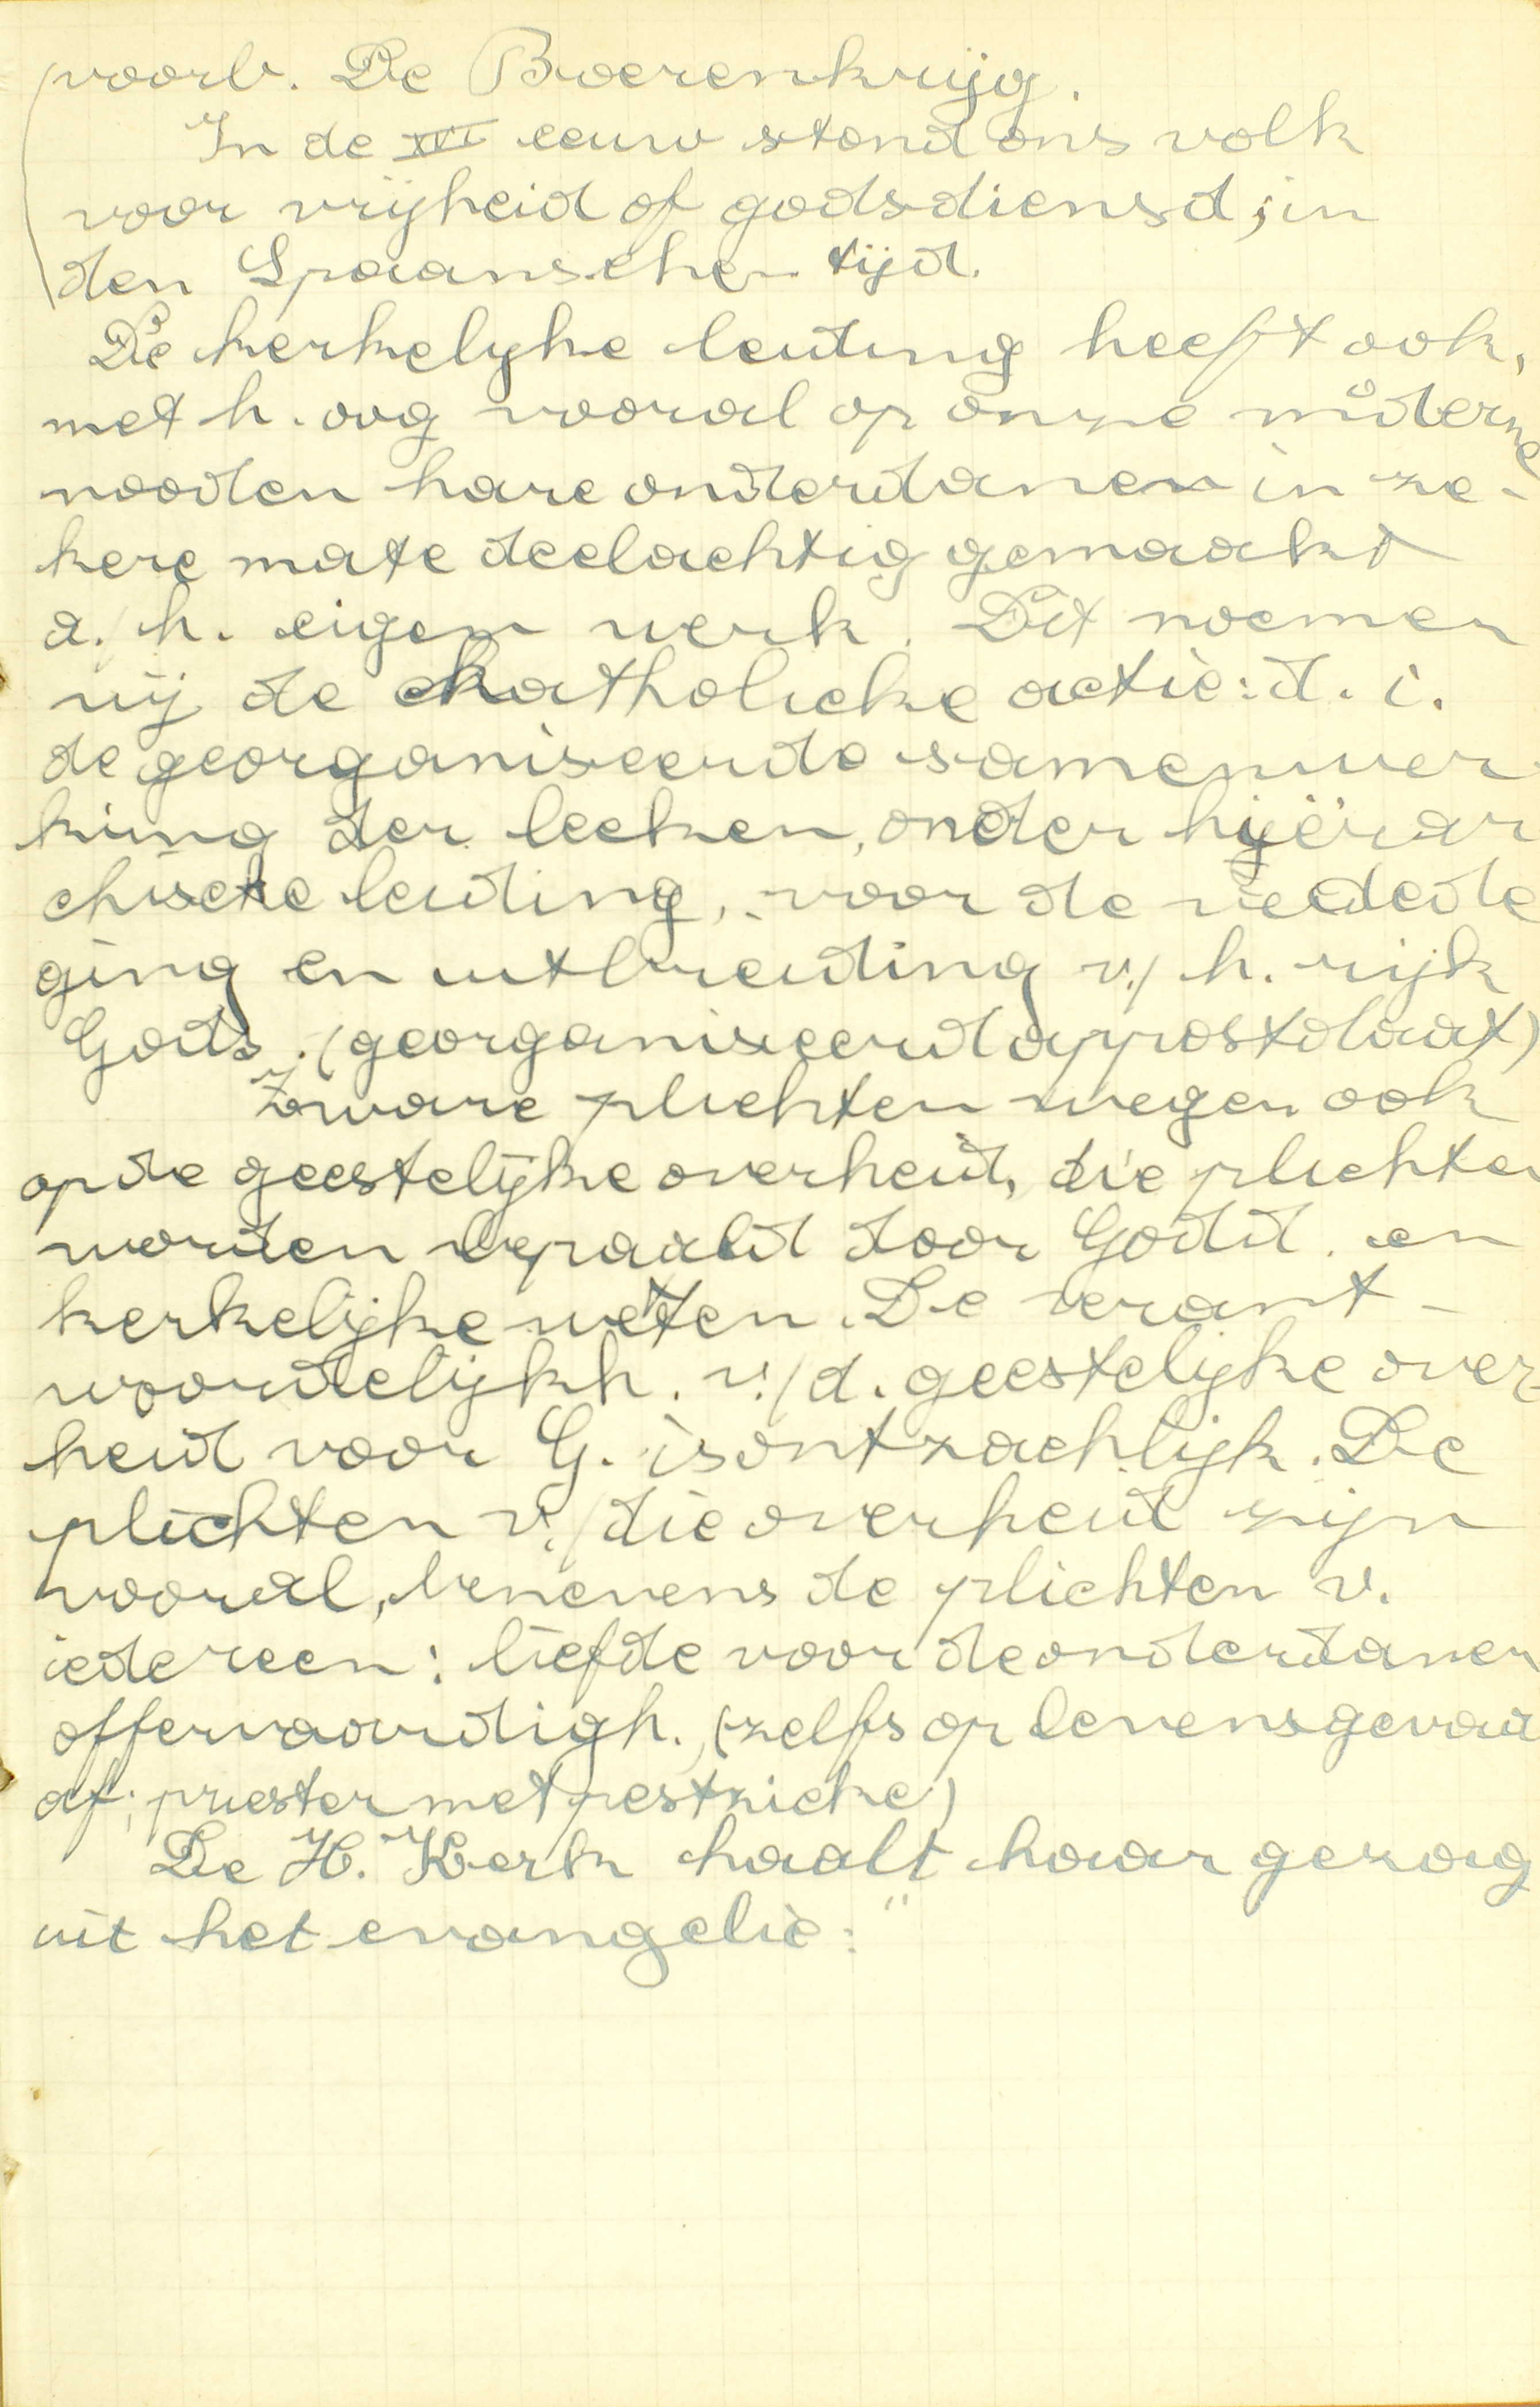 (voorb. De Boerenkrijg.
In de XVI eeuw stond ons volk
voor vrijheid of godsdiensd; in
den Spaanschen tijd.
De kerkelyke leiding heeft ook,
met h. oog vooral op onze moderne
nooden hare onderdanen in ze-
kere mate deelachtig gemaakt
a./h. eigen werk. Dit noemen
wij de katholieke actie: d. i.
de georganiseerde samenwer-
king der leeken, onder hijërar
chische leiding, voor de verdede
ging en uitbreiding v./h. rijk
Gods. (georganiseerd appostolaat)
Zware plichten wegen ook
op de geestelijke overheid, die plichten
worden bepaald door Godd. en
kerkelijke wetten. De verant-
woordelijkh. v./d. geestelyke over-
heid voor G. is ontzachlijk. De
plichten v./die overheid zijn
vooral, benevens de plichten v.
iedereen: liefde voor de onderdanen
offervaardigh. (zelfs op levensgevaar
af; priester met pestzieke)
De H. Kerk haalt haar gezag
uit het evangelie: "